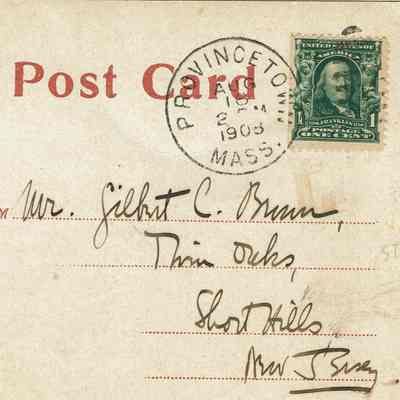 Post Card
PROVINCETO
AUG
2 PM
1908
MASS.
UNITED STATES OF
AMERICA
FRANKLIN
1 POSTAGE 1
ONE CENT
Mr. Gilbert C. Brown,
Twin Oaks,
Short Hills
New Jersey